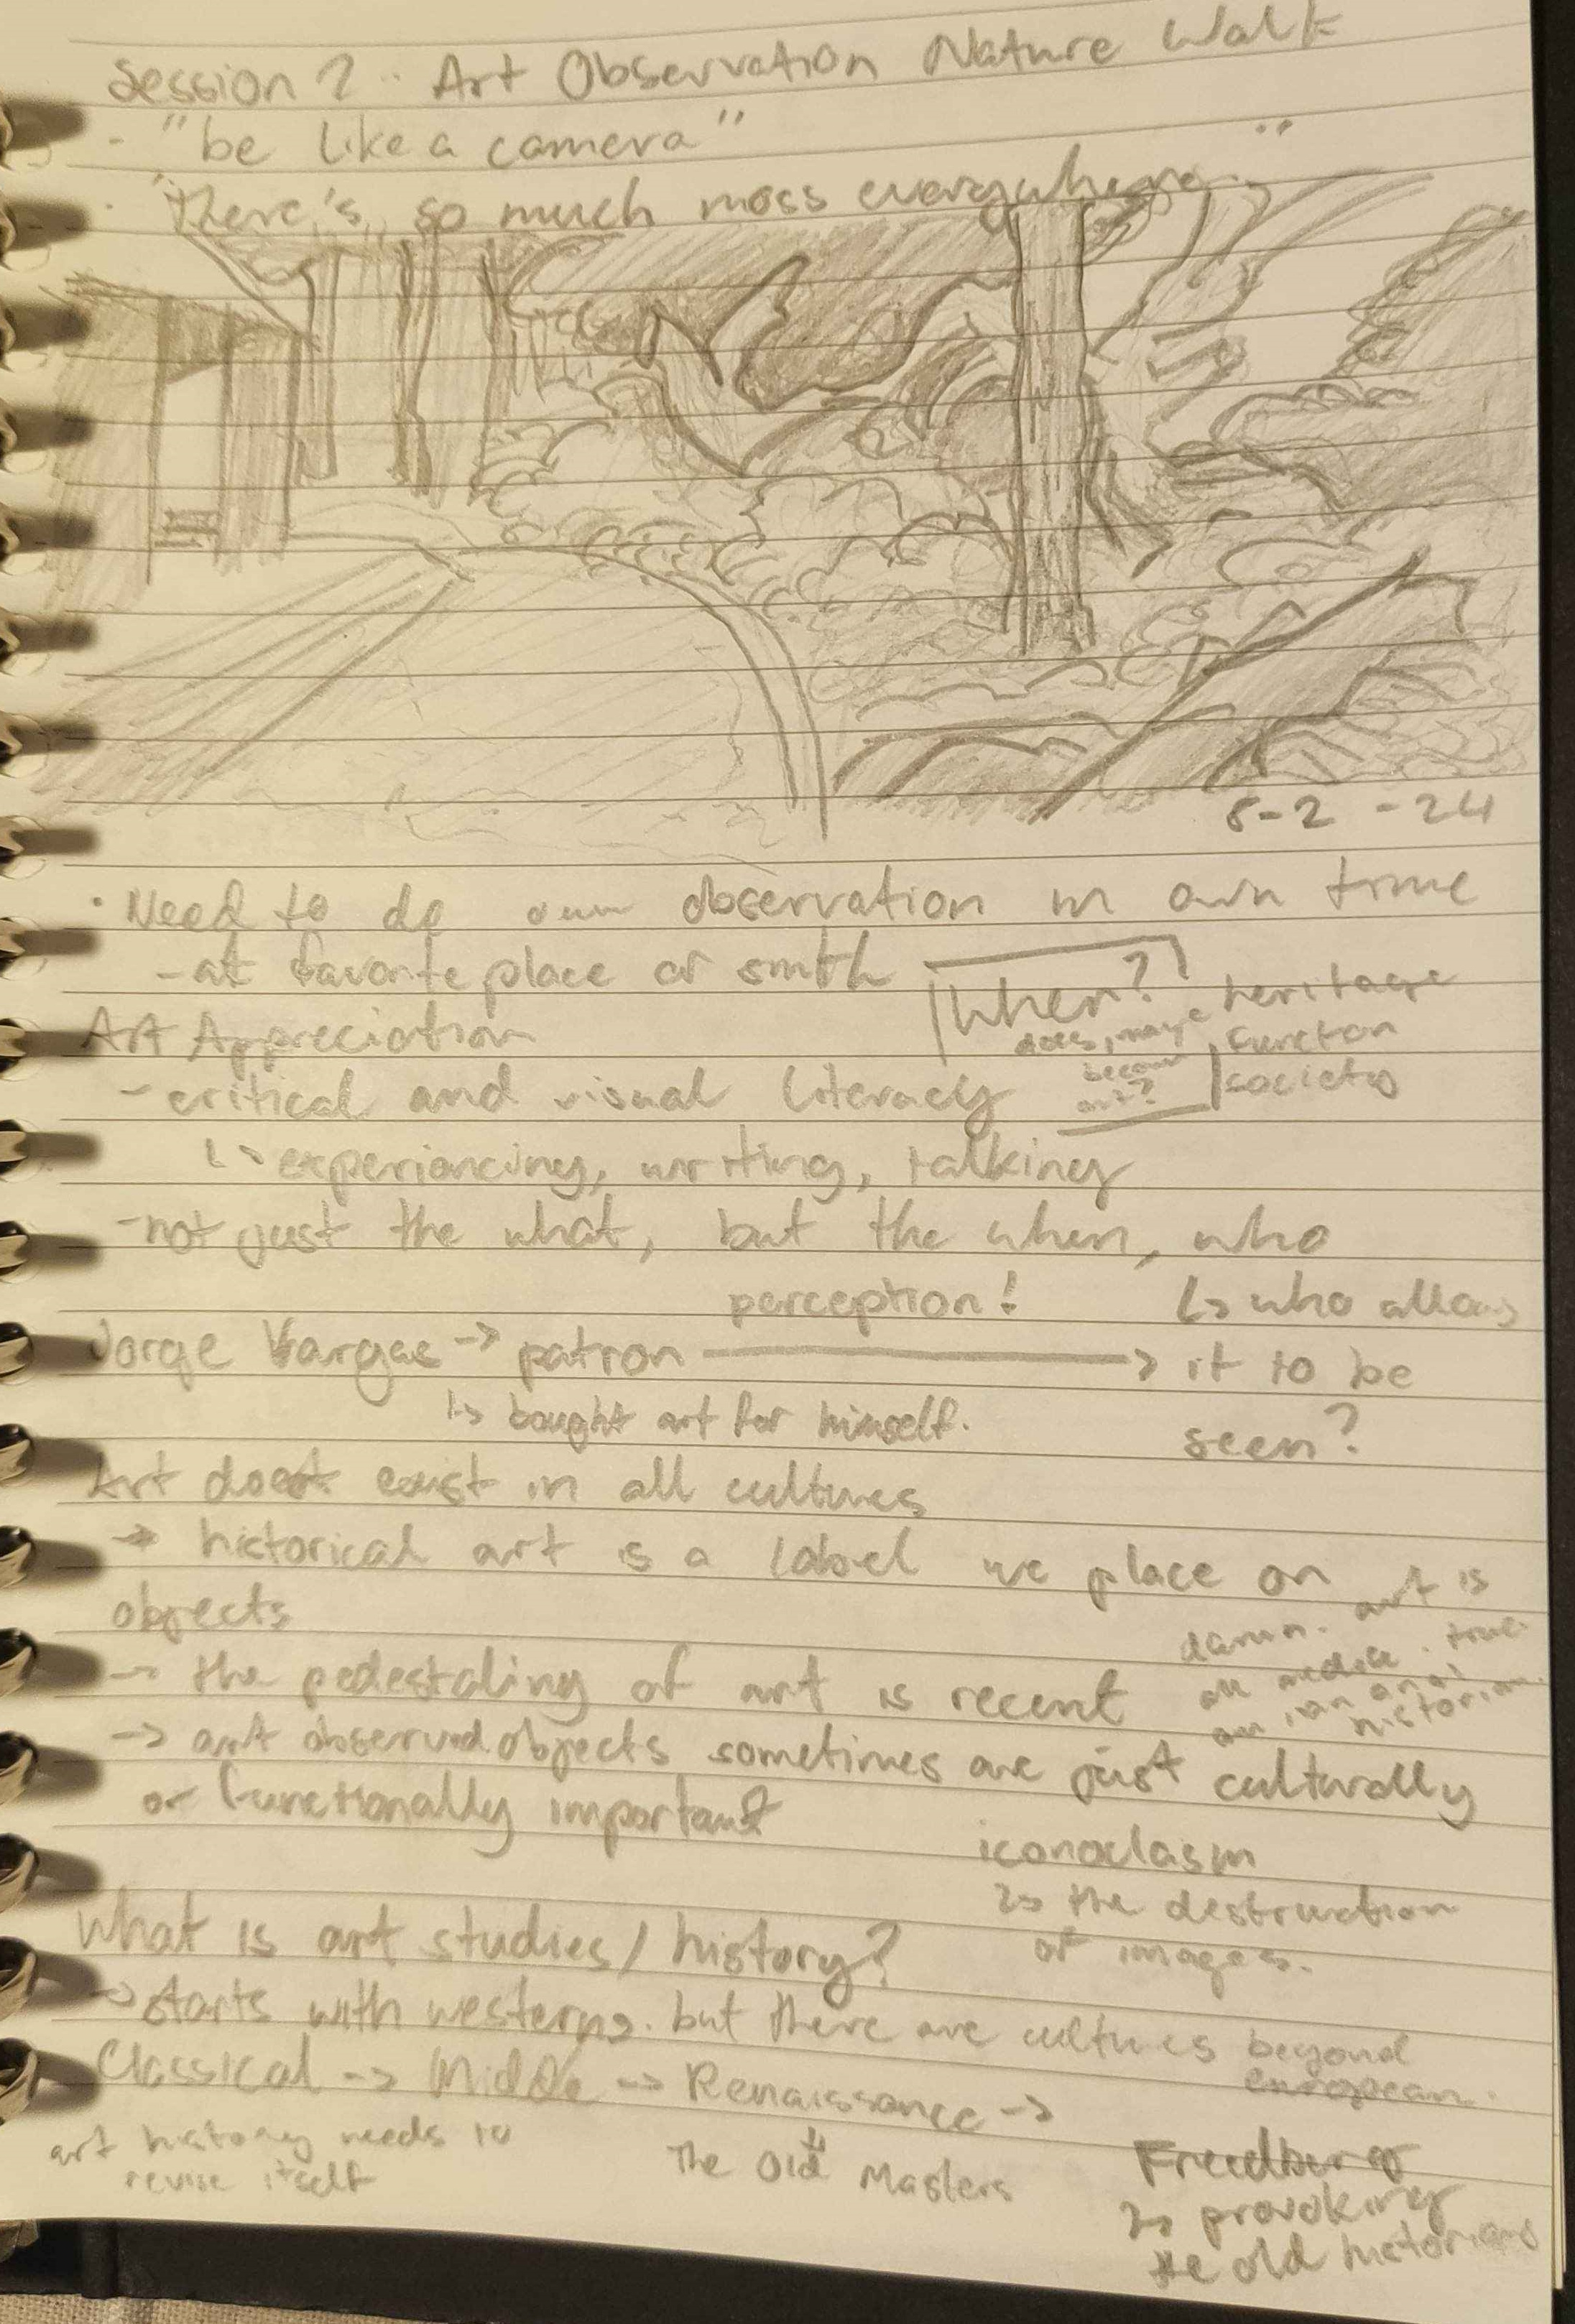 Session 2 : Art Observation Nature Walk
- "be like a camera"
- "there's so much moss everywhere"
8-2-24
• Need to do own observation in own time
- at favorite place or smth
When?
does, may
become
art?
heritage
function
society
Art Appreciation
- critical and visual literacy
↳ experiancing, writing, talking
- not just the what, but the when, who
perception!
↳ who allows
it to be
seen?
Jorge Vargas -> patron ->
↳ bought art for himself.
Art doest exist in all cultures
-> historical art is a label we place on
objects
-> the pedestaling of art is recent
damn. art is
time.
historian.
-> art observed objects sometimes are just culturally
or functionally important
iconoclasm
↳ the destruction
of images.
What is art studies / history?
-> starts with westerns. but there are cultures beyond
european.
Classical -> Middle -> Renaissance ->
art history needs to
revise itself
The Old Masters
Freedberg
↳ provoking
the old historians